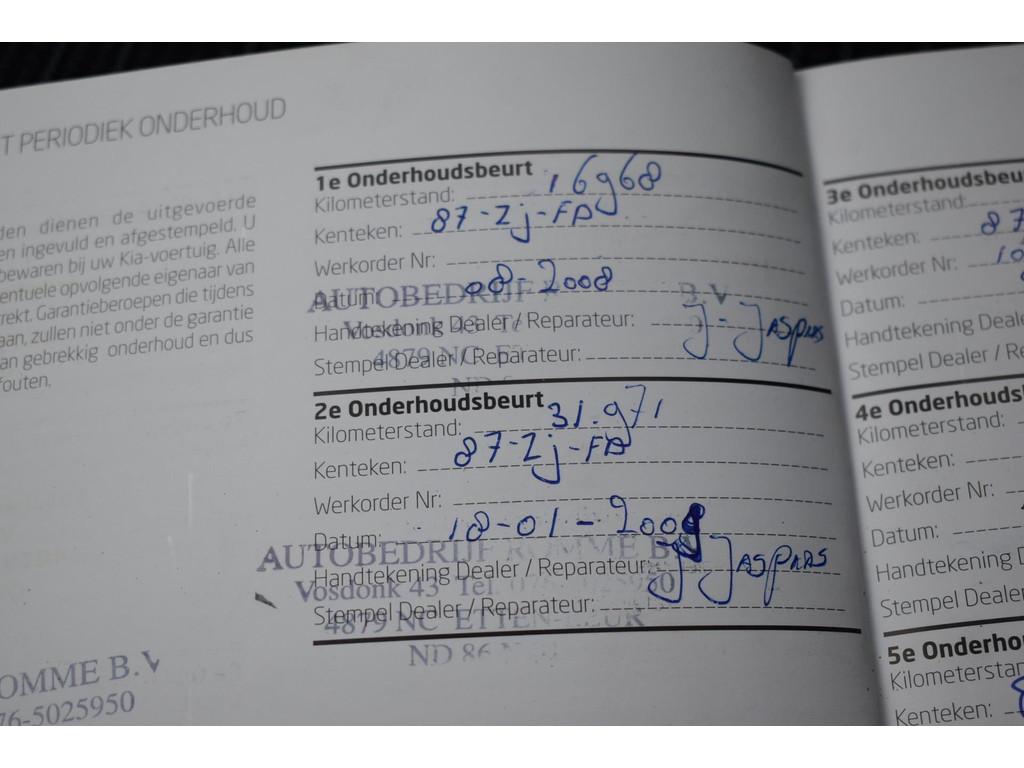 T PERIODIEK ONDERHOUD
den dienen de uitgevoerde
en ingevuld en afgestempeld. U
bewaren bij uw Kia-voertuig. Alle
entuele opvolgende eigenaar van
rekt. Garantieberoepen die tijdens
aan, zullen niet onder de garantie
an gebrekkig onderhoud en dus
fouten.
OMME B.V
76-5025950
1e Onderhoudsbeurt
Kilometerstand: 16968
Kenteken: 87-Zj-FD
Werkorder Nr:
Datum: 08-2008
AUTOBEDRIJF B.V
Handtekening Dealer / Reparateur: J-JASPARS
Vosdonk 43 Te
Stempel Dealer / Reparateur:
4879 NC E
ND
2e Onderhoudsbeurt
Kilometerstand: 31.971
Kenteken: 87-Zj-FD
Werkorder Nr:
Datum: 18-01-2009
AUTOBEDRIJF ROMME B.V
Handtekening Dealer / Reparateur: J JASPARS
Vosdonk 43 Tel. 076-5025950
Stempel Dealer / Reparateur:
4879 NC ETTEN-LEUR
ND 86
3e Onderhoudsbeu
Kilometerstand:
Kenteken: 87
Werkorder Nr: 10
Datum:
Handtekening Deale
Stempel Dealer / Re
4e Onderhouds
Kilometerstand:
Kenteken:
Werkorder Nr:
Datum:
Handtekening D
Stempel Dealer
5e Onderho
Kilometerstan
Kenteken: